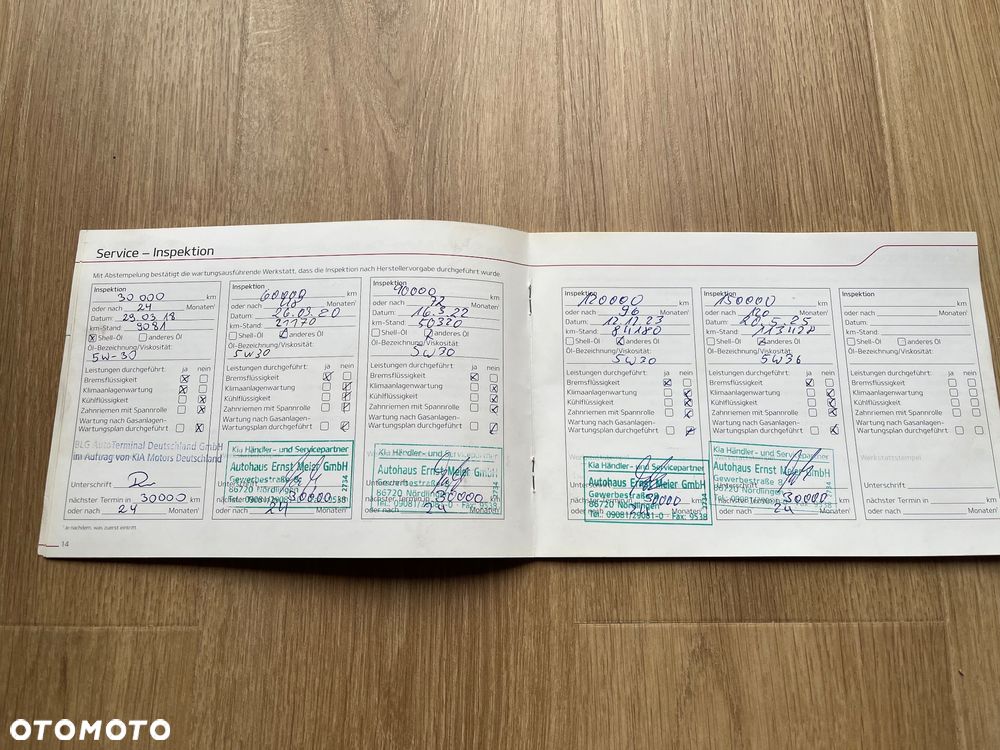 Service – Inspektion
Mit Abstempelung bestätigt die wartungsausführende Werkstatt, dass die Inspektion nach Herstellervorgabe durchgeführt wurde.
Inspektion
30 000 km
oder nach 24 Monaten¹
Datum: 29.03.18
km-Stand: 9081
Shell-Öl anderes Öl
Öl-Bezeichnung/Viskosität:
5W-30
Leistungen durchgeführt: ja nein
Bremsflüssigkeit
Klimaanlagenwartung
Kühlflüssigkeit
Zahnriemen mit Spannrolle
Wartung nach Gasanlagen-
Wartungsplan durchgeführt
BLG AutoTerminal Deutschland GmbH
im Auftrag von KIA Motors Deutschland
Unterschrift
nächster Termin in 30000 km
oder nach 24 Monaten¹
¹ Je nachdem, was zuerst eintritt.
14
Inspektion
60000 km
oder nach 48 Monaten¹
Datum: 26.03.20
km-Stand: 27170
Shell-Öl anderes Öl
Öl-Bezeichnung/Viskosität:
5W30
Leistungen durchgeführt: ja nein
Bremsflüssigkeit
Klimaanlagenwartung
Kühlflüssigkeit
Zahnriemen mit Spannrolle
Wartung nach Gasanlagen-
Wartungsplan durchgeführt
Kia Händler- und Servicepartner
Autohaus Ernst Meier GmbH
Gewerbestraße 8
86720 Nördlingen
2734
30000
oder nach 24 Monaten¹
Inspektion
90000 km
oder nach 72 Monaten¹
Datum: 16.3.22
km-Stand: 50320
Shell-Öl anderes Öl
Öl-Bezeichnung/Viskosität:
5W30
Leistungen durchgeführt: ja nein
Bremsflüssigkeit
Klimaanlagenwartung
Kühlflüssigkeit
Zahnriemen mit Spannrolle
Wartung nach Gasanlagen-
Wartungsplan durchgeführt
Kia Händler- und Servicepartner
Autohaus Ernst Meier GmbH
Gewerbestraße 8
86720 Nördlingen
2734
nächster Termin in 30000
oder nach 24 Monaten¹
Inspektion
120000 km
oder nach 96 Monaten¹
Datum:
km-Stand: 84180
Shell-Öl anderes Öl
Öl-Bezeichnung/Viskosität:
5W30
Leistungen durchgeführt: ja nein
Bremsflüssigkeit
Klimaanlagenwartung
Kühlflüssigkeit
Zahnriemen mit Spannrolle
Wartung nach Gasanlagen-
Wartungsplan durchgeführt
Kia Händler- und Servicepartner
Autohaus Ernst Meier GmbH
Gewerbestraße 8
86720 Nördlingen
Tel.: 09081/29081-0 · Fax: 9538
2734
30000
Inspektion
150000 km
oder nach 120 Monaten¹
Datum:
km-Stand:
Shell-Öl anderes Öl
Öl-Bezeichnung/Viskosität:
Leistungen durchgeführt: ja nein
Bremsflüssigkeit
Klimaanlagenwartung
Kühlflüssigkeit
Zahnriemen mit Spannrolle
Wartung nach Gasanlagen-
Wartungsplan durchgeführt
Kia Händler- und Servicepartner
Autohaus Ernst Meier GmbH
Gewerbestraße 8
86720 Nördlingen
2734
30000
oder nach 24 Monaten¹
Inspektion
km
oder nach Monaten¹
Datum:
km-Stand:
Shell-Öl anderes Öl
Öl-Bezeichnung/Viskosität:
Leistungen durchgeführt: ja nein
Bremsflüssigkeit
Klimaanlagenwartung
Kühlflüssigkeit
Zahnriemen mit Spannrolle
Wartung nach Gasanlagen-
Wartungsplan durchgeführt
Werkstattstempel
Unterschrift
nächster Termin in km
oder nach Monaten¹
OTOMOTO